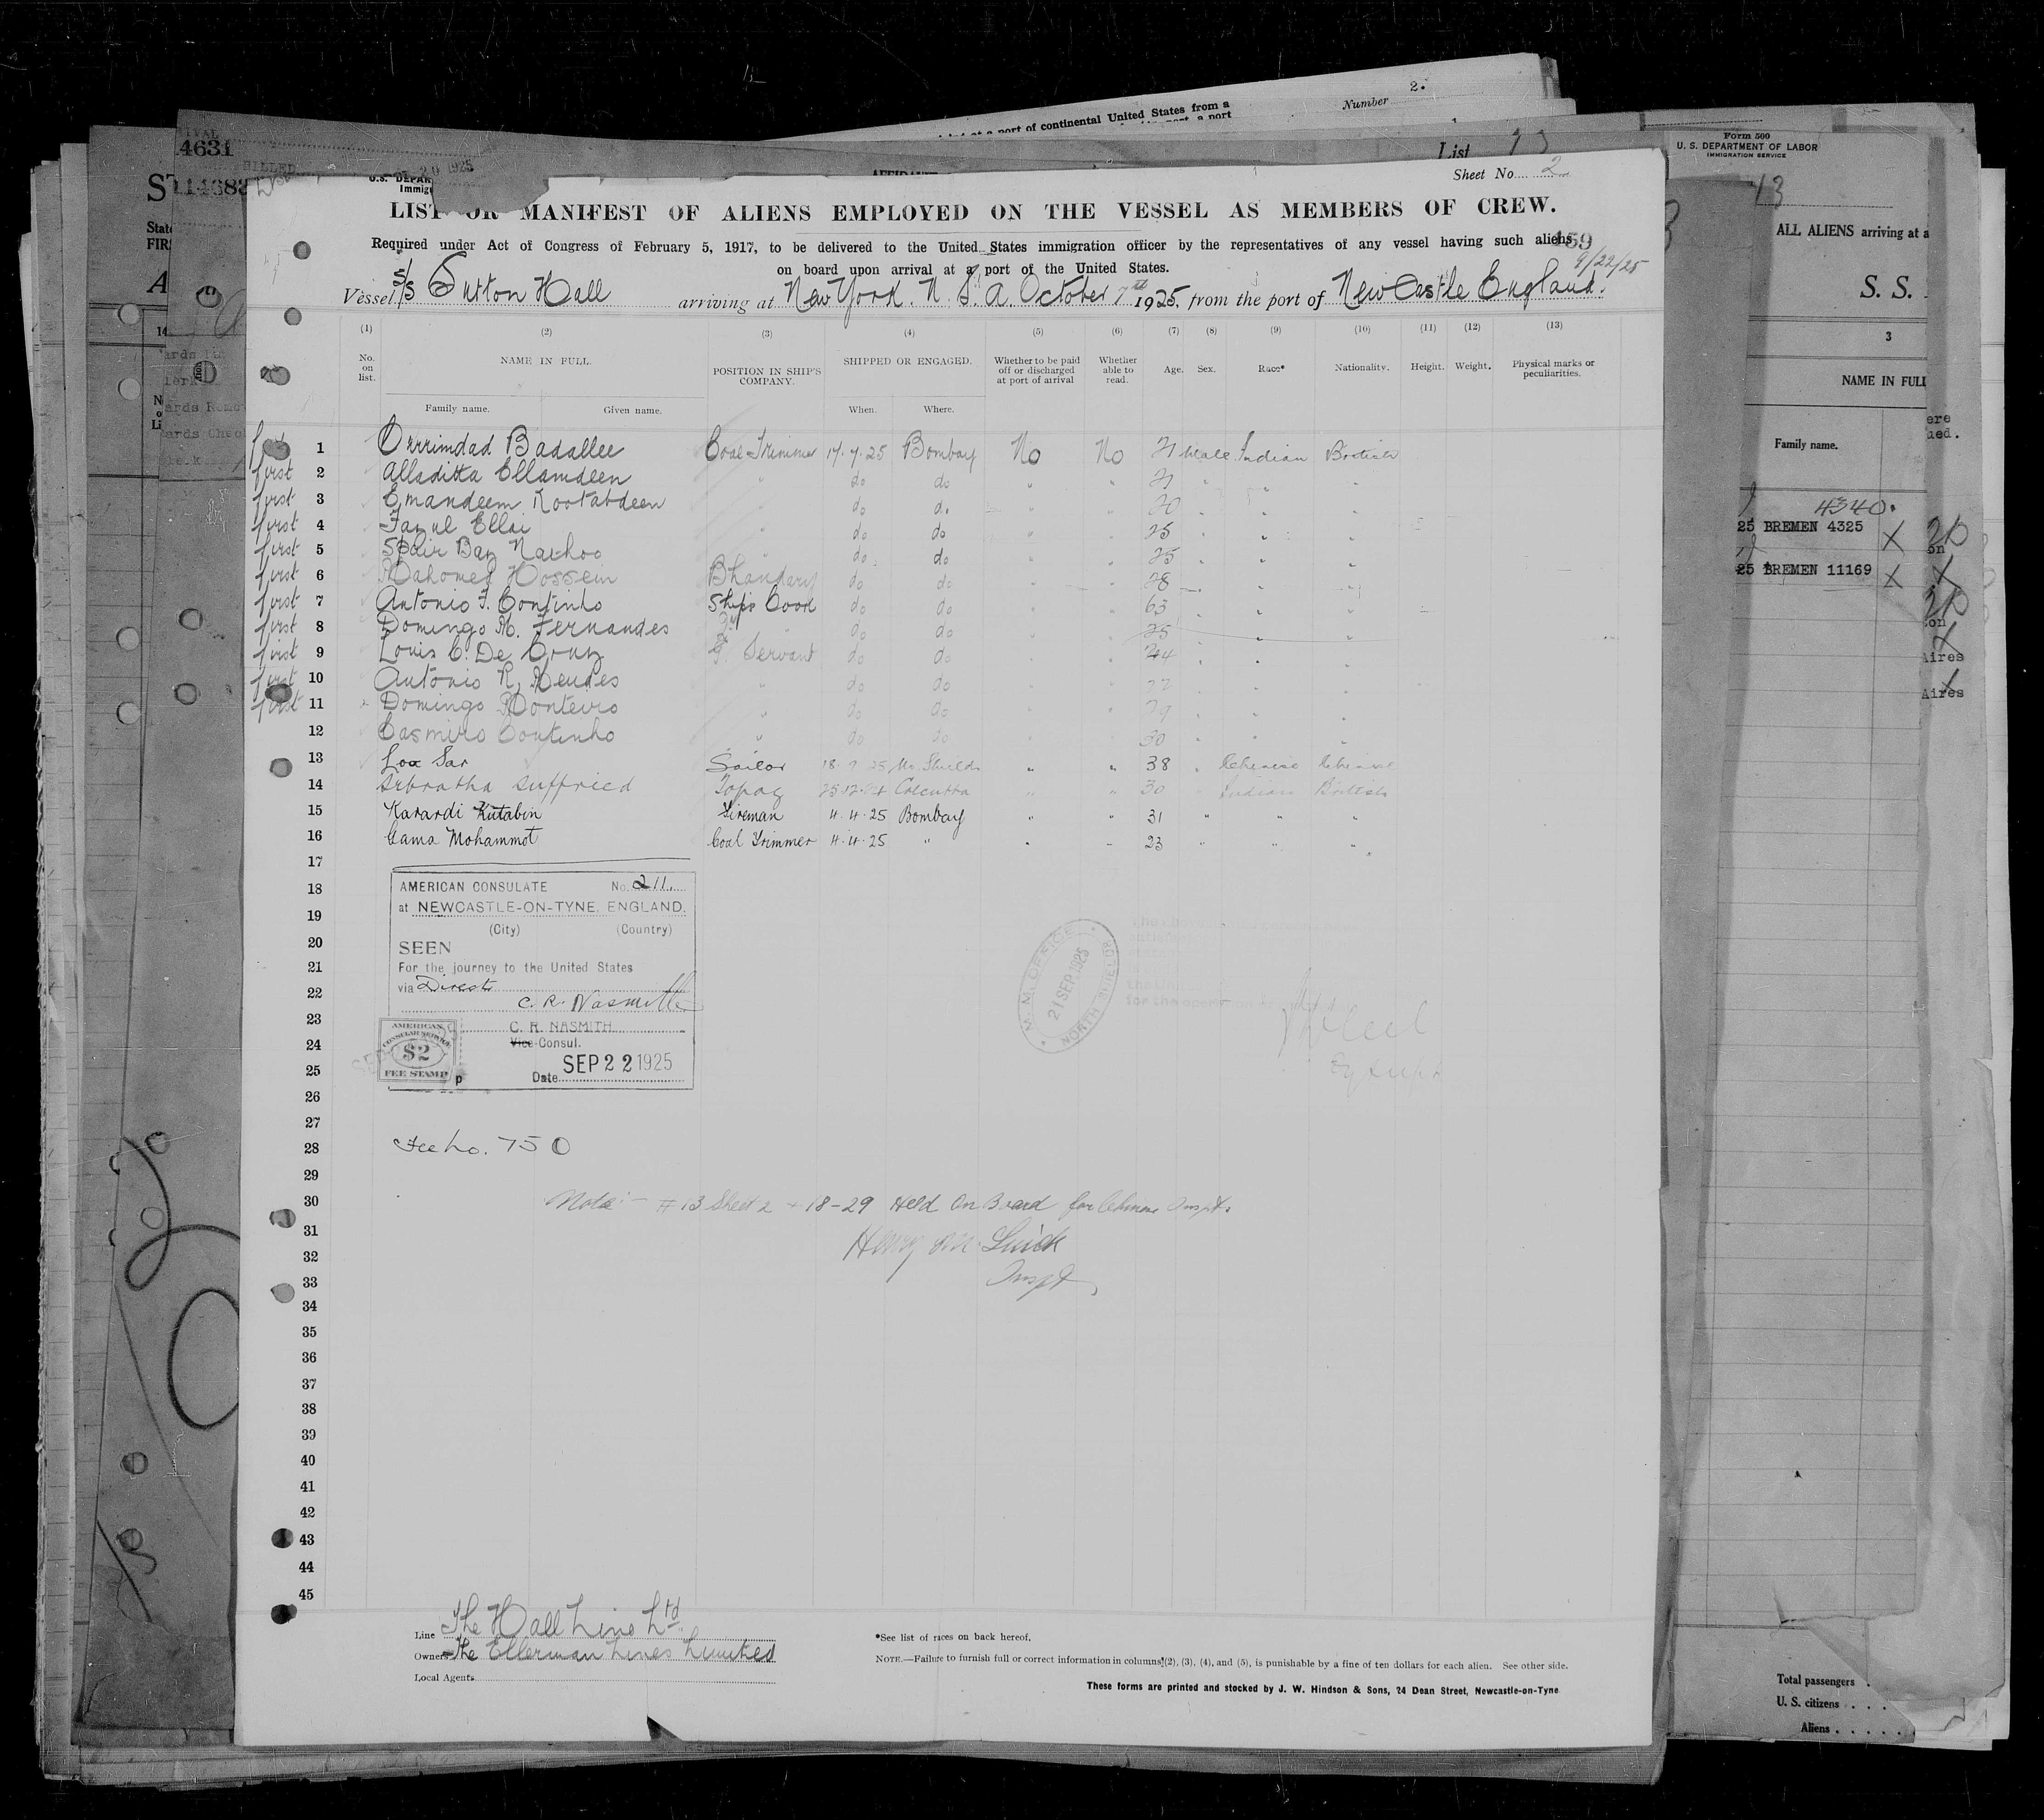 2.
Number
at a port of continental United States from a
List 13
Form 500
U. S. DEPARTMENT OF LABOR
IMMIGRATION SERVICE
4631
1925
Sheet No. 2
LIST OR MANIFEST OF ALIENS EMPLOYED ON THE VESSEL AS MEMBERS OF CREW.
Required under Act of Congress of February 5, 1917, to be delivered to the United States immigration officer by the representatives of any vessel having such aliens
on board upon arrival at a port of the United States.
159
9/22/25
Vessel S/S Sutton Hall arriving at New York. N. S. A. October 7th 1925, from the port of NewCastle England.
(1) (2) (3) (4) (5) (6) (7) (8) (9) (10) (11) (12) (13)
No. on list. NAME IN FULL. POSITION IN SHIP'S COMPANY. SHIPPED OR ENGAGED. Whether to be paid off or discharged at port of arrival Whether able to read. Age. Sex. Race* Nationality. Height. Weight. Physical marks or peculiarities.
Family name. Given name. When. Where.
1 Orrrimdad Badallee Coal Trimmer 17.7.25 Bombay No No 21 Male Indian British
first 2 Alladitta Ellamdeen " do do " " 21 " " "
first 3 Emandeem Kootabdeen " do do " " 20 " " "
first 4 Fazul Ellai " do do " " 25 " " "
first 5 Bax do do " " 25 " " "
first 6 Mahomed Hossein Bhandary do do " " 28 " "
first 7 Antonio F. Continho Ships Cook do do " " 63 " " "
first 8 Domingo M. Fernandes do do " " 25 " " "
first 9 Louis C. De Cruz G. Servant do do " " " " "
first 10 Antonio R. Mendes " do do " " " " "
first 11 Domingo Monteiro " do do " " 29 " " "
12 Casmiro Coutinho " do do " " 30 " " "
13 Lox Sar Sailor 18.9.25 No. Shields " " 38 " Chinese Chinese
14 Sebratha Suffried Topaz 25.12.24 Calcutta " " 30 " Indian British
15 Karardi Kutabin Fireman 4.4.25 Bombay " " 31 " " "
16 Cama Mohammot Coal Trimmer 4.4.25 " " " 23 " " "
17
18
19
20
21
22
23
24
25
26
27
28
29
30
31
32
33
34
35
36
37
38
39
40
41
42
43
44
45
AMERICAN CONSULATE No. 211.
at NEWCASTLE-ON-TYNE, ENGLAND.
(City) (Country)
SEEN
For the journey to the United States
via Direct
C. R. Nasmith
C. R. NASMITH
Vice-Consul.
Date SEP 22 1925
AMERICAN
CONSULAR SERVICE
$2
FEE STAMP
M. M. OFFICE
21 SEP. 1925
NORTH SHIELDS
for the
Fee No. 750
Note:- #13 Sheet 2 + 18-29 Held On Board for Chinese Inspt.
Henry
Inspt
Line The Hall Line Ltd
Owners The Ellerman Lines Limited
Local Agents
*See list of races on back hereof.
NOTE.—Failure to furnish full or correct information in columns (2), (3), (4), and (5), is punishable by a fine of ten dollars for each alien. See other side.
These forms are printed and stocked by J. W. Hindson & Sons, 24 Dean Street, Newcastle-on-Tyne
ALL ALIENS arriving at a
S. S.
3
NAME IN FULL
Family name.
4340.
25 BREMEN 4325
25 BREMEN 11169
Aires
Aires
Total passengers
U. S. citizens
Aliens